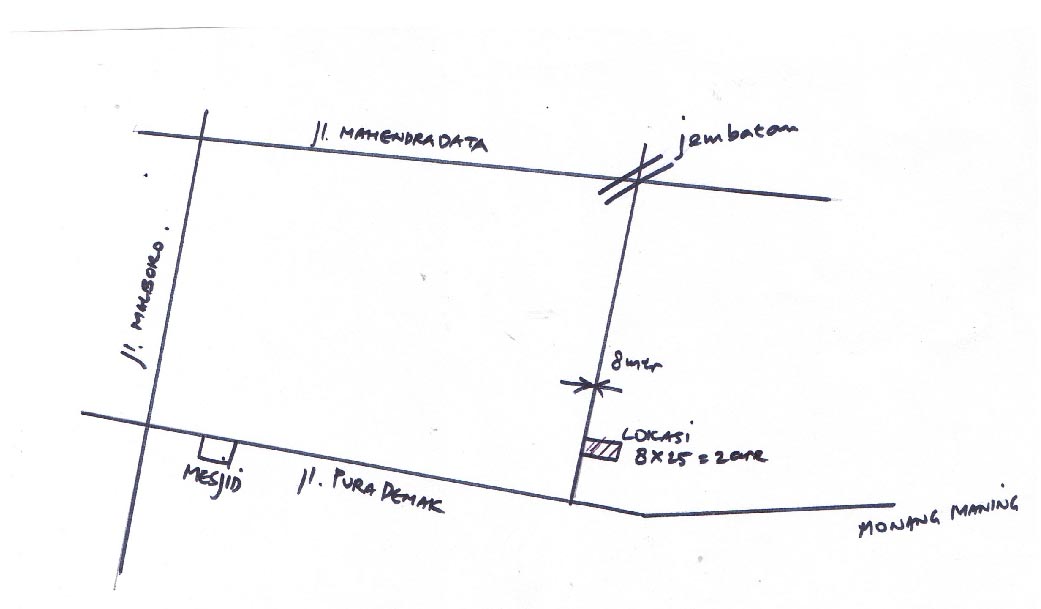 Jl. MAHENDRADATA
jembatan
Jl. MALBORO.
8 mtr
LOKASI
8 x 25 = 2 are
MESJID
Jl. PURA DEMAK
MONANG MANING